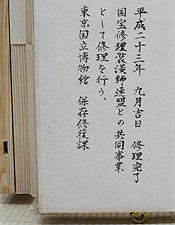 平成二十三年 九月吉日 修理完了
国宝修理装潢師連盟との共同事業
として修理を行う。
東京国立博物館 保存修復課